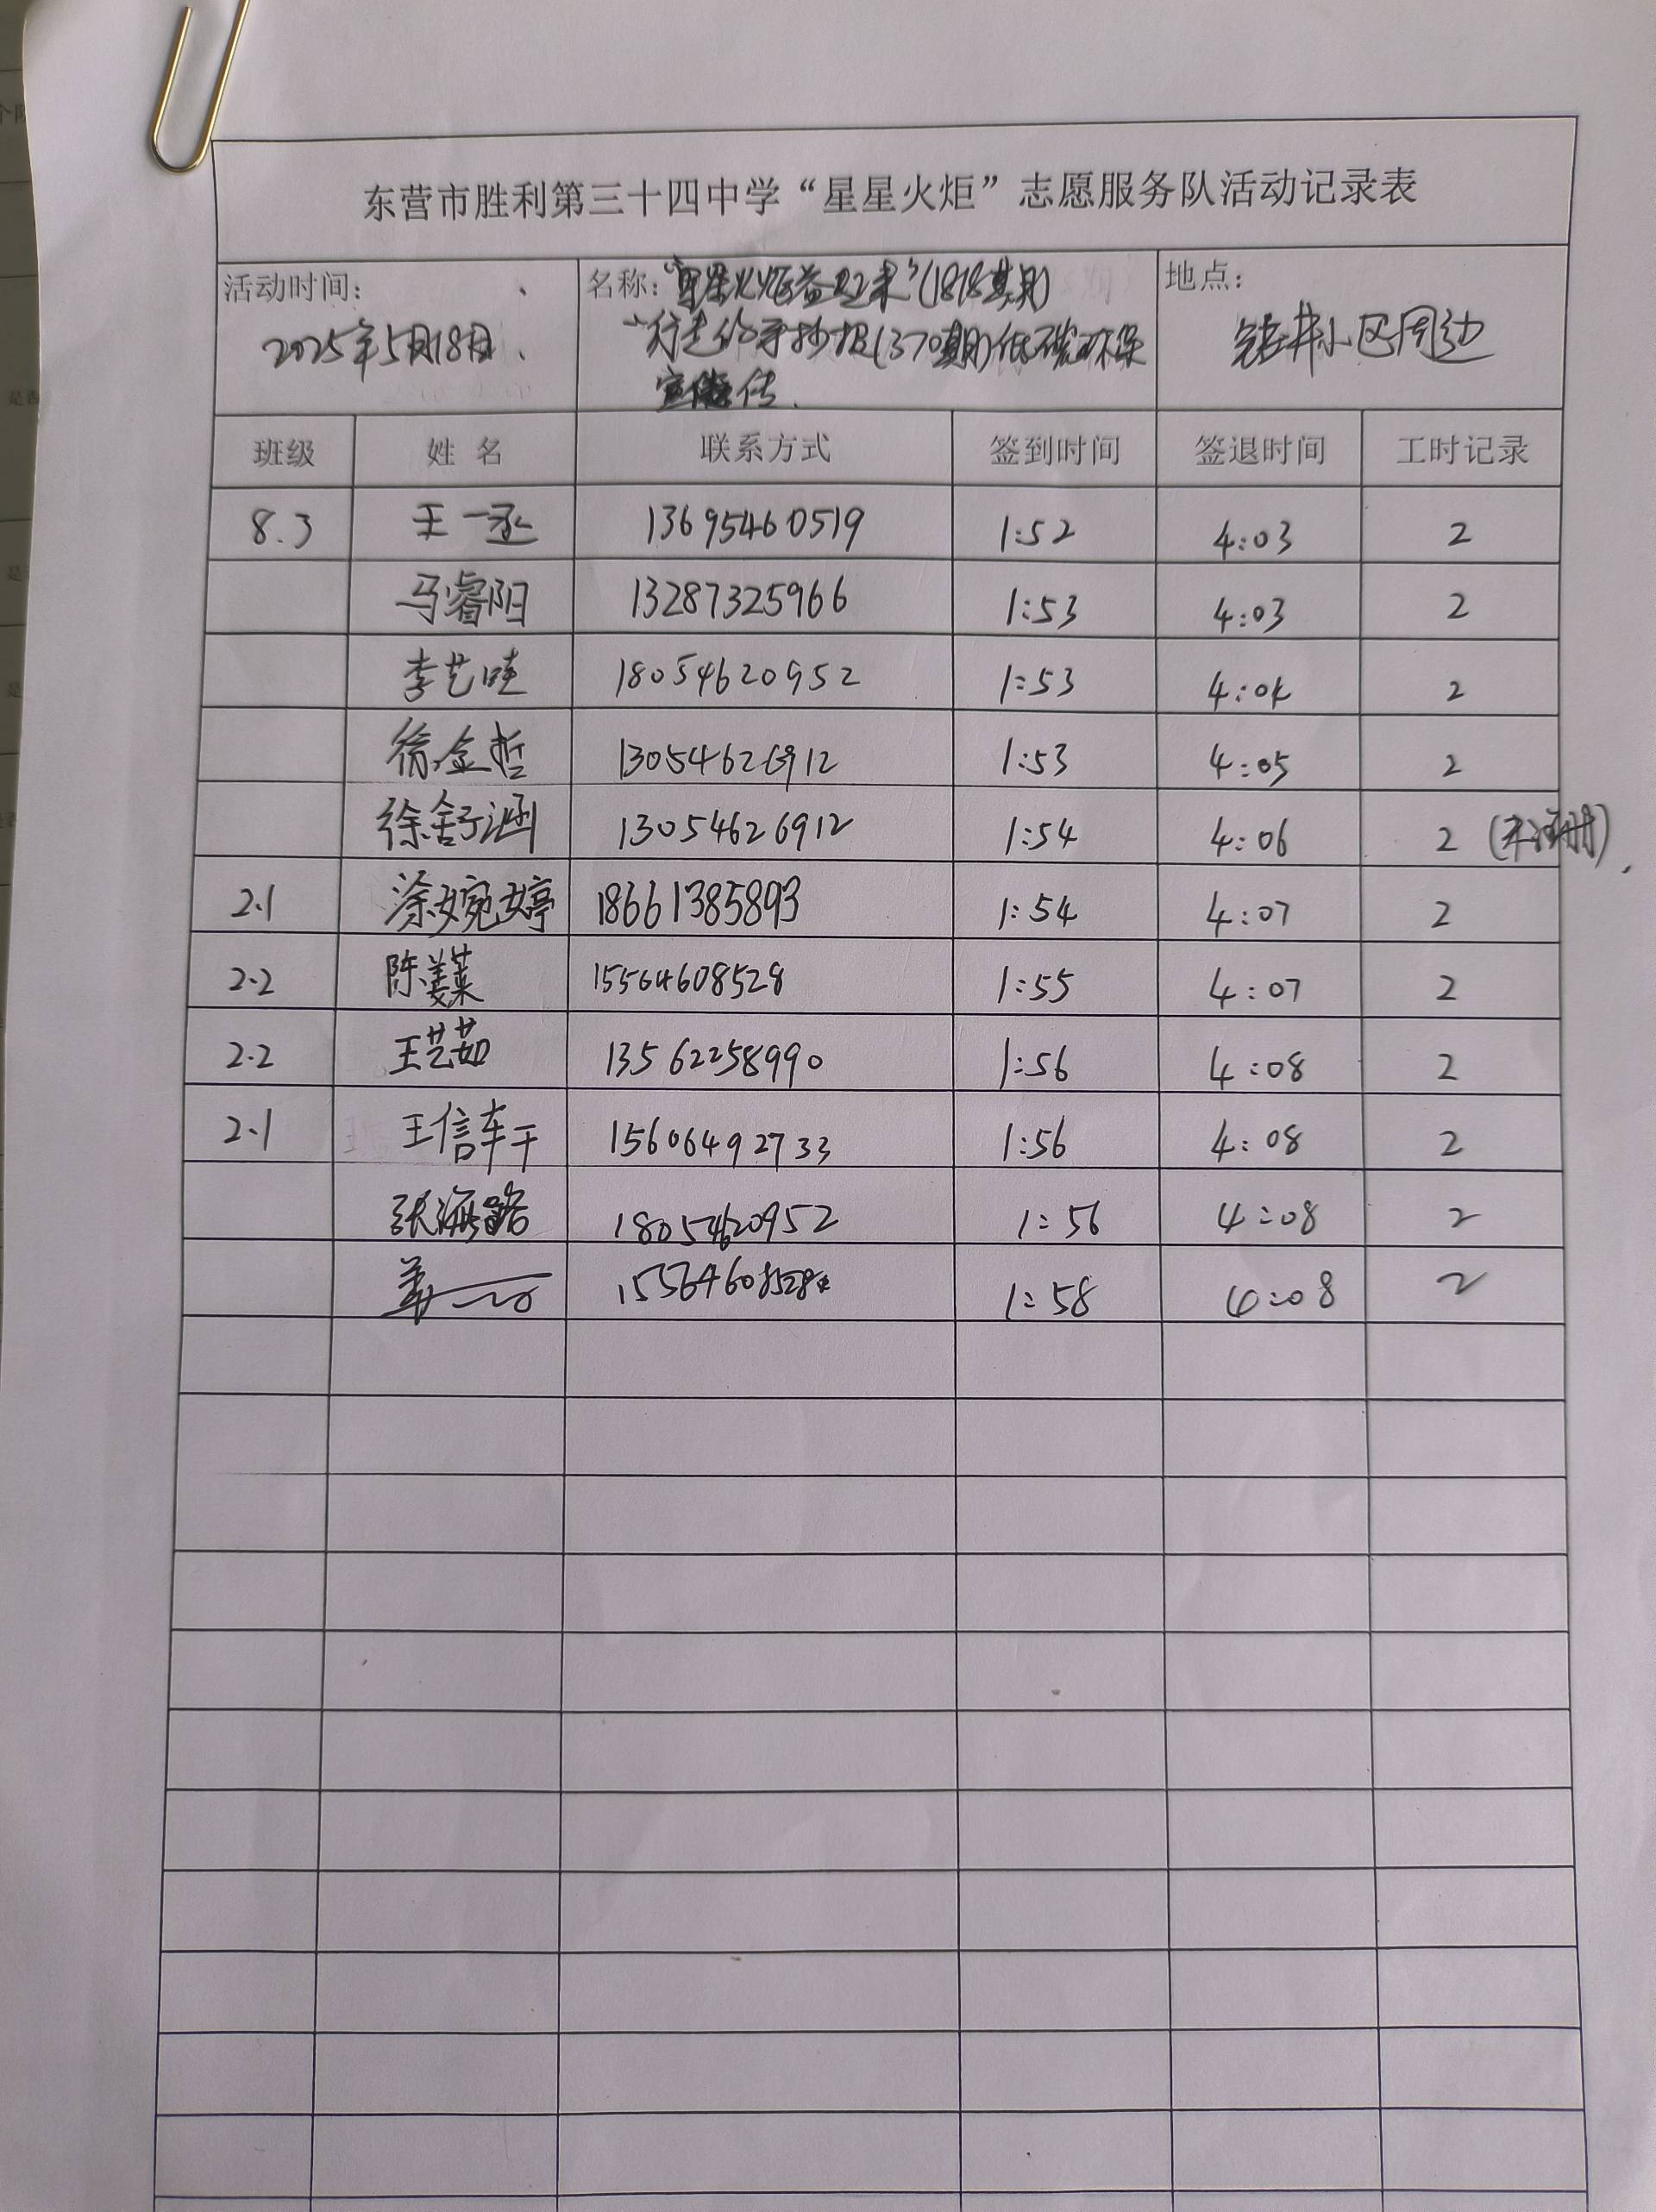 东营市胜利第三十四中学“星星火炬”志愿服务队活动记录表
活动时间： 名称：“星星火炬益起来”(1818期) 地点：
2025年5月18日 “行走的手抄报(370期)低碳环保 钻井小区周边
宣传
班级 姓名 联系方式 签到时间 签退时间 工时记录
8.3 王一丞 13695460519 1:52 4:03 2
马睿阳 13287325966 1:53 4:03 2
李艺 18054620952 1:53 4:04 2
徐金哲 13054626912 1:53 4:05 2
徐舒涵 13054626912 1:54 4:06 2 (未注册)
2.1 涂婉婷 18661385893 1:54 4:07 2
2.2 陈 15564608528 1:55 4:07 2
2.2 王艺茹 13562258990 1:56 4:08 2
2.1 王信轩 15606492733 1:56 4:08 2
张海路 18054620952 1:56 4:08 2
姜 15564608528 1:58 4:08 2